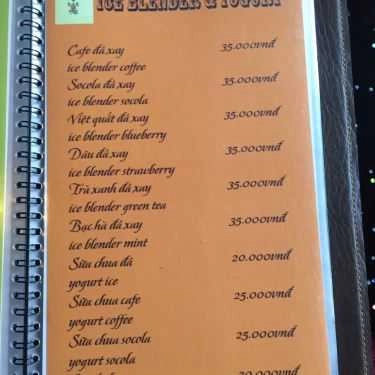 ICE BLENDER & YOGURT
Cafe đá xay 35.000vnđ
ice blender coffee
Socola đá xay 35.000vnđ
ice blender socola
Việt quất đá xay 35.000vnđ
ice blender blueberry
Dâu đá xay 35.000vnđ
ice blender strawberry
Trà xanh đá xay 35.000vnđ
ice blender green tea
Bạc hà đá xay 35.000vnđ
ice blender mint
Sữa chua đá 20.000vnđ
yogurt ice
Sữa chua cafe 25.000vnđ
yogurt coffee
Sữa chua socola 25.000vnđ
yogurt socola